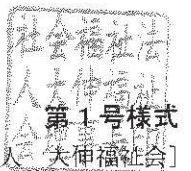 社会福祉法
人大伸福祉
第1号様式
人 大伸福祉会]